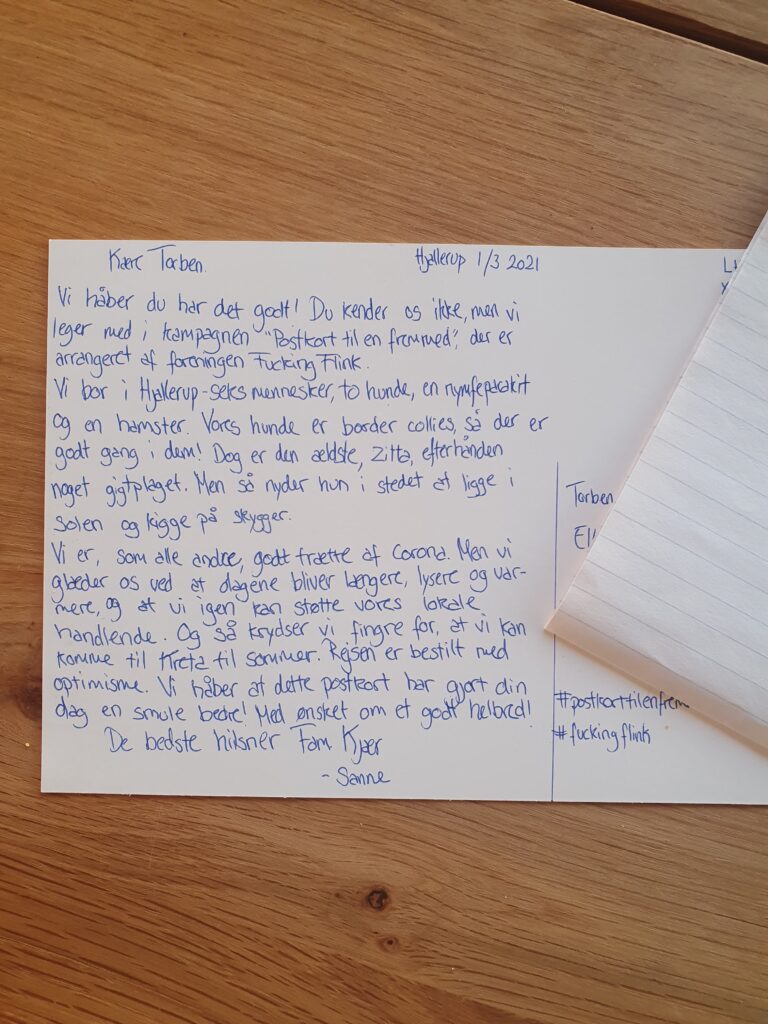 Kære Torben.
Hjallerup 1/3 2021
Vi håber du har det godt! Du kender os ikke, men vi
leger med i kampagnen "Postkort til en fremmed", der er
arrangeret af foreningen Fucking Flink.
Vi bor i Hjallerup - seks mennesker, to hunde, en nymfeparakit
og en hamster. Vores hunde er border collies, så der er
godt gang i dem! Dog er den ældste, Zitta, efterhånden
noget gigtplaget. Men så nyder hun i stedet at ligge i
solen og kigge på skygger.
Vi er, som alle andre, godt trætte af Corona. Men vi
glæder os ved at dagene bliver længere, lysere og var-
mere, og at vi igen kan støtte vores lokale
handlende. Og så krydser vi fingre for, at vi kan
komme til Kreta til sommer. Rejsen er bestilt med
optimisme. Vi håber at dette postkort har gjort din
dag en smule bedre! Med ønsket om et godt helbred!
De bedste hilsner Fam Kjær
- Sanne
Torben
#postkorttilenfrem
#fuckingflink